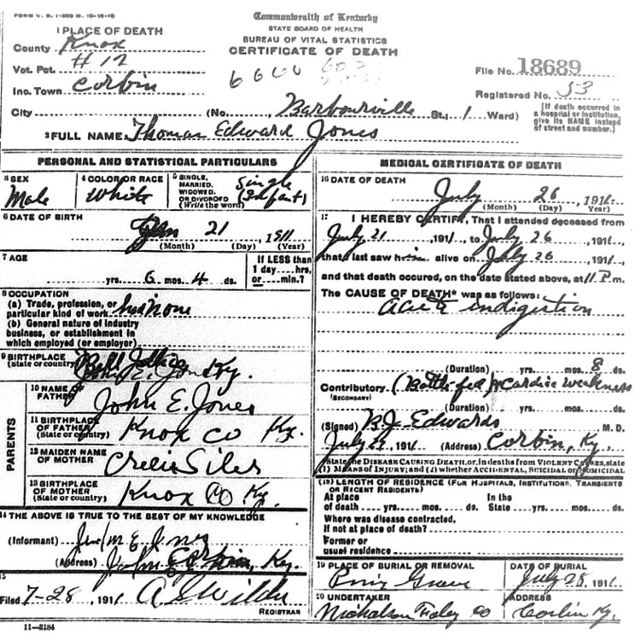 FORM V. S. 1-
Commonwealth of Kentucky
STATE BOARD OF HEALTH
BUREAU OF VITAL STATISTICS
CERTIFICATE OF DEATH
1 PLACE OF DEATH
County Knox
Vot. Pct. #12
Inc. Town Corbin
City (No. Barbourville St., 1 Ward)
File No. 18689
Registered No. 53
[If death occurred in a hospital or institution, give its NAME instead of street and number.]
2 FULL NAME Thomas Edward Jones
PERSONAL AND STATISTICAL PARTICULARS
3 SEX
Male
4 COLOR OR RACE
White
5 SINGLE, MARRIED, WIDOWED OR DIVORCED (Write the word)
Single (Infant)
6 DATE OF BIRTH
21 1911
(Month) (Day) (Year)
7 AGE
yrs. 6 mos. 4 ds.
If LESS than 1 day....hrs, or....min.?
8 OCCUPATION
(a) Trade, profession, or particular kind of work none
(b) General nature of industry business, or establishment in which employed (or employer)
9 BIRTHPLACE
(State or country) Ky.
PARENTS
10 NAME OF FATHER
John E. Jones
11 BIRTHPLACE OF FATHER
(State or country) Knox Co Ky.
12 MAIDEN NAME OF MOTHER
Siler
13 BIRTHPLACE OF MOTHER
(State or country) Knox Co Ky.
14 THE ABOVE IS TRUE TO THE BEST OF MY KNOWLEDGE
(Informant) Jno E Jones
(Address) Corbin, Ky.
15
Filed 7-28, 1911
REGISTRAR
11-3184
MEDICAL CERTIFICATE OF DEATH
16 DATE OF DEATH
July 26, 1911.
(Month) (Day) (Year)
17 I HEREBY CERTIFY, That I attended deceased from
July 21, 1911, to July 26, 1911,
that I last saw him alive on July 26, 1911,
and that death occured, on the date stated above, at 11 P.m.
The CAUSE OF DEATH* was as follows:
Acute indigestion
(Duration) yrs. mos. 8 ds.
Contributory (Bottle fed) Cardiac weakness
(SECONDARY)
(Duration) yrs. mos. ds.
(Signed) B.J. Edwards M. D.
July 22, 1911 (Address) Corbin, Ky.
*State the DISEASE CAUSING DEATH, or, in deaths from VIOLENT CAUSES, state (1) MEANS OF INJURY; and (2) whether ACCIDENTAL, SUICIDAL or HOMICIDAL
18 LENGTH OF RESIDENCE (FOR HOSPITALS, INSTITUTIONS, TRANSIENTS OR RECENT RESIDENTS)
At place of death yrs. mos. ds. In the State yrs. mos. ds.
Where was disease contracted,
If not at place of death?
Former or usual residence
19 PLACE OF BURIAL OR REMOVAL
Grove
DATE OF BURIAL
July 28, 1911
20 UNDERTAKER
Nicholson Foley Co
ADDRESS
Corbin Ky.